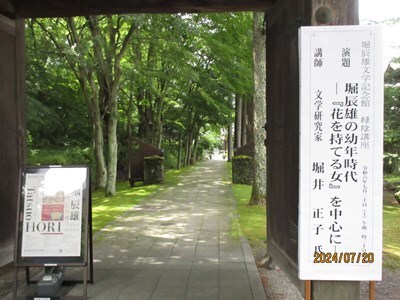 堀辰雄文学記念館 緑陰講座
演題
堀辰雄の幼年時代
―『花を持てる女』を中心に―
講師
文学研究家
堀井 正子 氏
堀辰雄
Tatsuo
HORI
2024/07/20